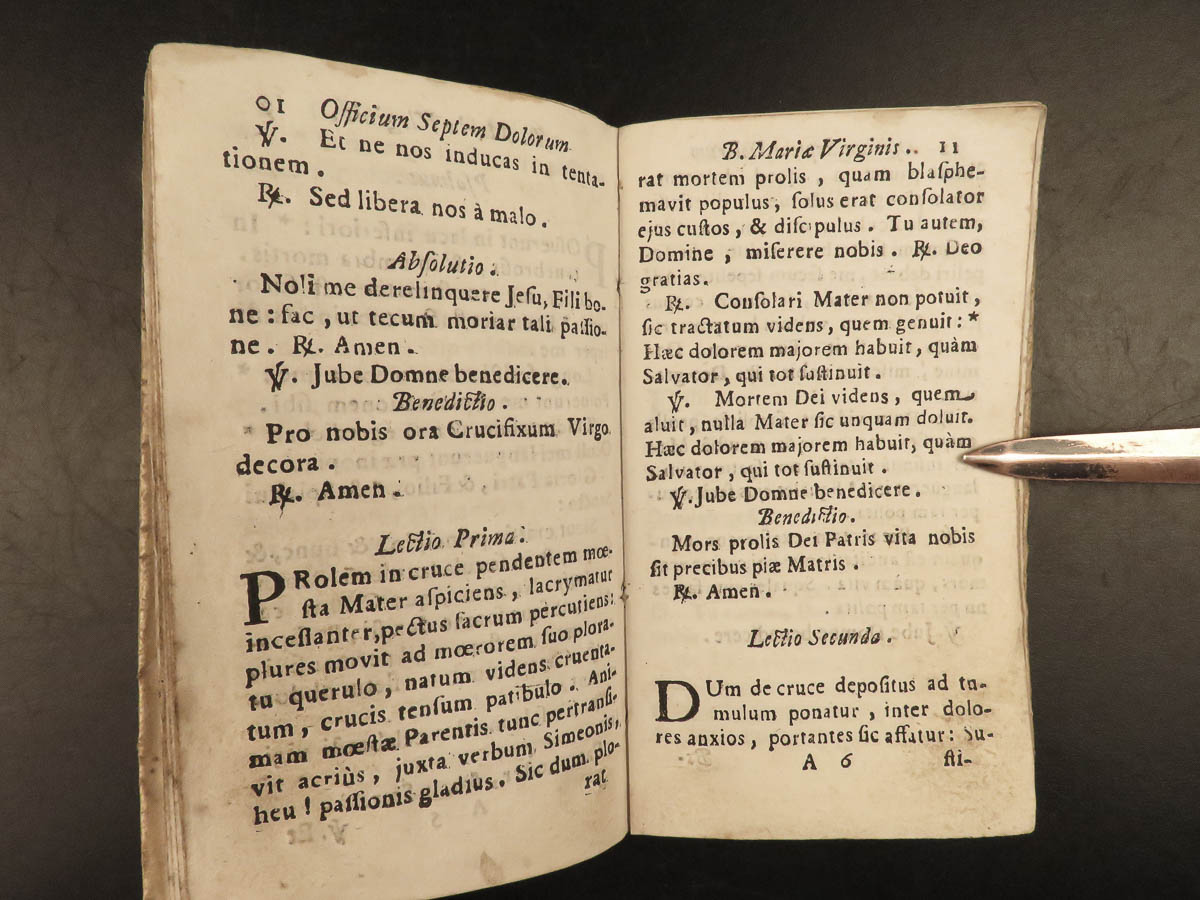 01 Officium Septem Dolorum
℣. Et ne nos inducas in tenta-
tionem.
℟. Sed libera nos à malo.
Abſolutio.
Noli me derelinquere Jeſu, Fili bo-
ne : fac, ut tecum moriar tali paſſio-
ne. ℟. Amen.
℣. Jube Domne benedicere.
Benedictio.
Pro nobis ora Crucifixum Virgo
decora.
℟. Amen.
Lectio Prima.
PRolem in cruce pendentem mœ-
ſta Mater aſpiciens, lacrymatur
inceſſanter, pectus ſacrum percutiens:
plures movit ad mœrorem ſuo plora-
tu querulo, natum videns cruenta-
tum, crucis tenſum patibulo. Ani-
mam mœſtæ Parentis tunc pertranſi-
vit acriùs, juxta verbum Simeonis,
heu! paſſionis gladius. Sic dum plo-
rat
B. Mariæ Virginis.. 11
rat mortem prolis, quam blaſphe-
mavit populus, ſolus erat conſolator
ejus cuſtos, & diſcipulus. Tu autem,
Domine, miſerere nobis. ℟. Deo
gratias.
℟. Conſolari Mater non potuit,
ſic tractatum videns, quem genuit: *
Hæc dolorem majorem habuit, quàm
Salvator, qui tot ſuſtinuit.
℣. Mortem Dei videns, quem
aluit, nulla Mater ſic unquam doluit.
Hæc dolorem majorem habuit, quàm
Salvator, qui tot ſuſtinuit.
℣. Jube Domne benedicere.
Benedictio.
Mors prolis Dei Patris vita nobis
ſit precibus piæ Matris.
℟. Amen.
Lectio Secunda.
DUm de cruce depoſitus ad tu-
mulum ponatur, inter dolo-
res anxios, portantes ſic affatur: Su-
A 6 ſti-